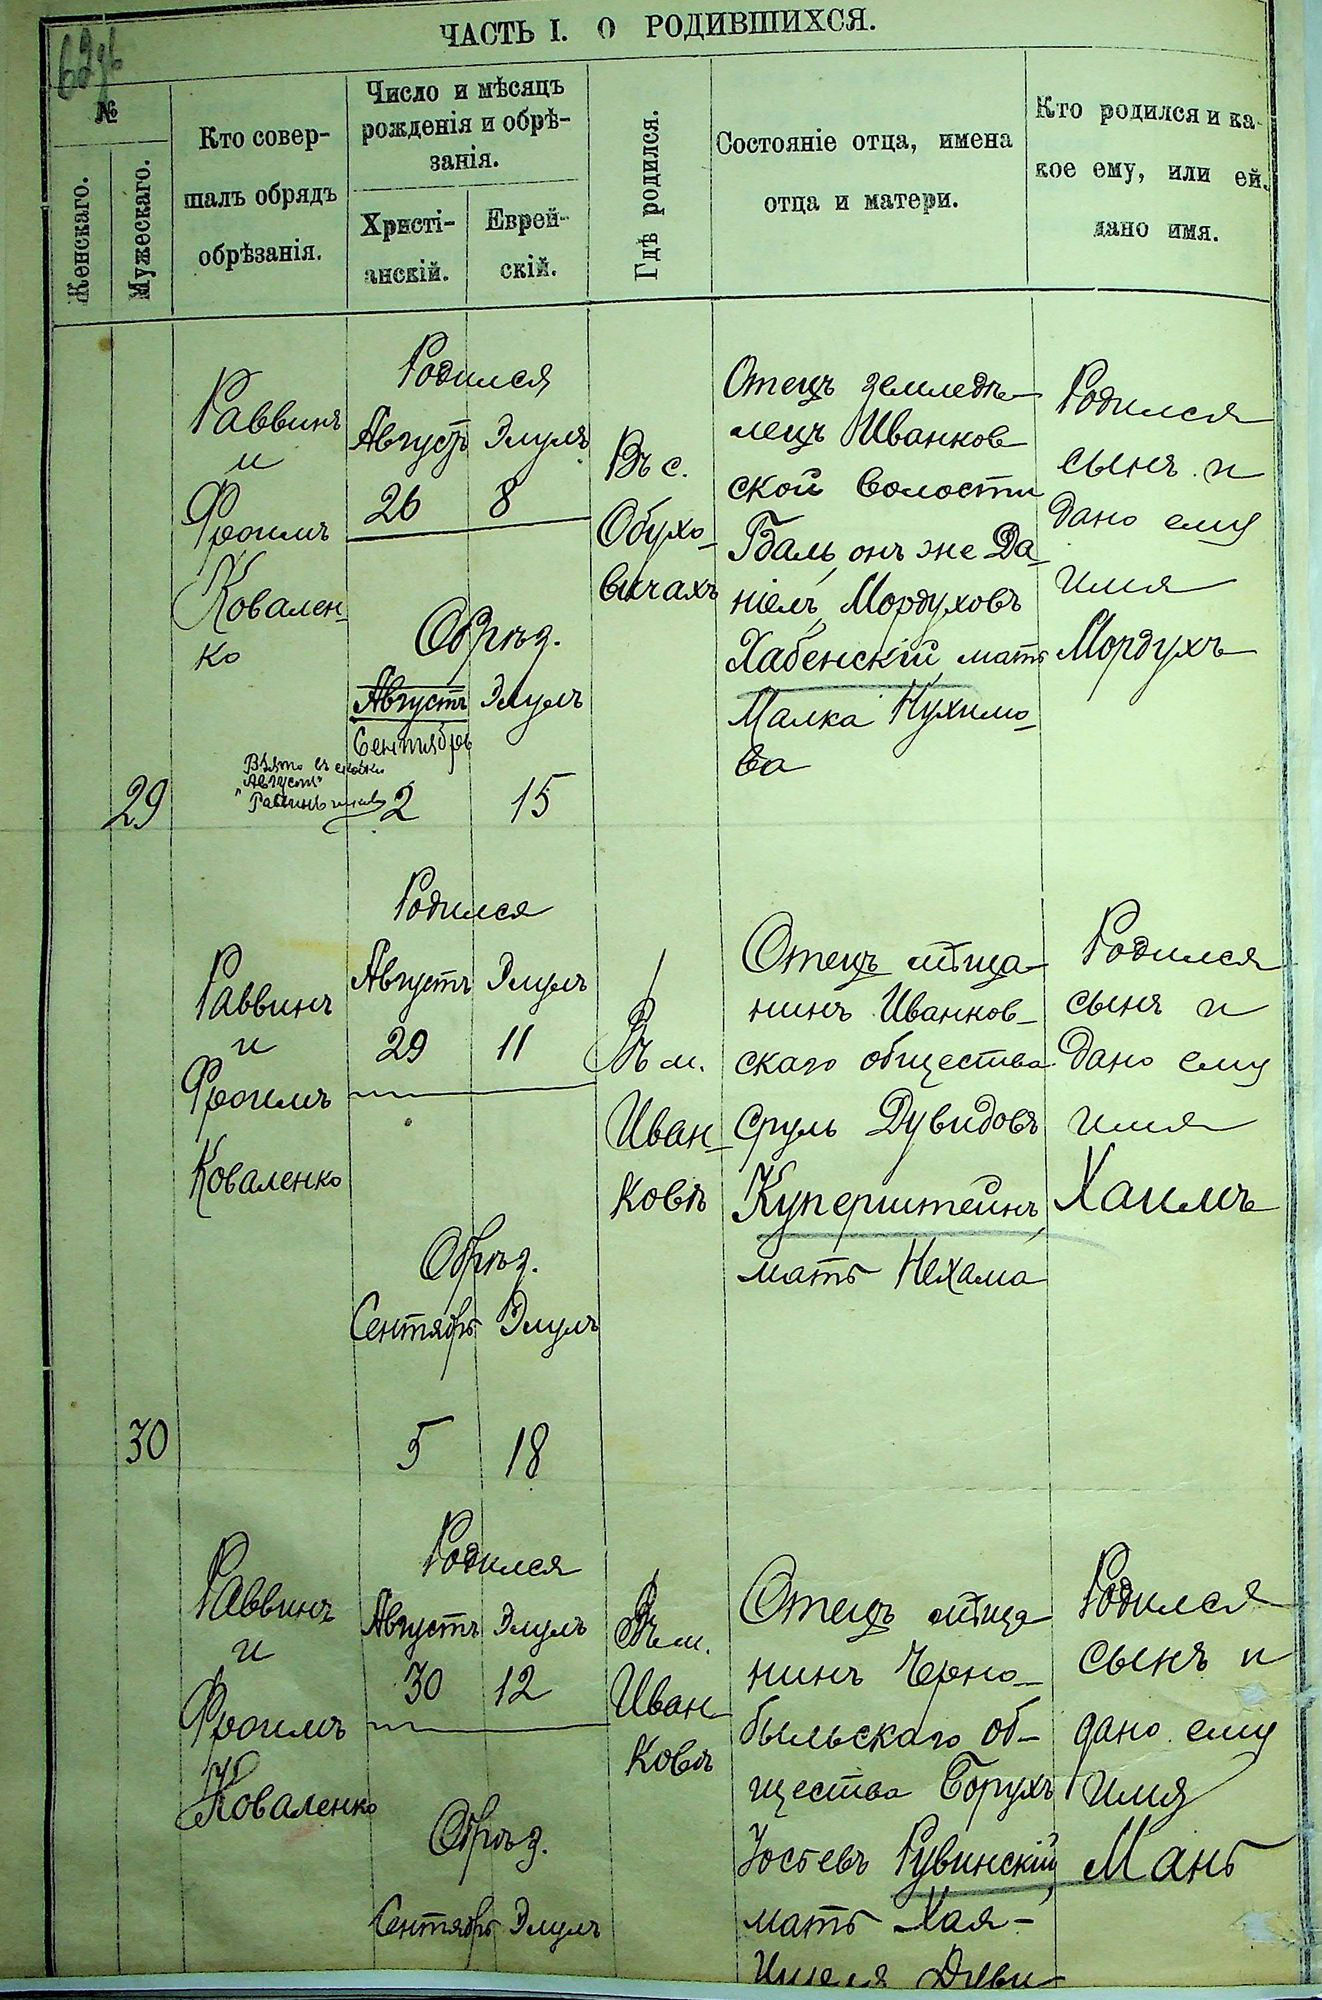 62об
ЧАСТЬ I. О РОДИВШИХСЯ.
№
Женскаго.
Мужескаго.
Кто совер-
шалъ обрядъ
обрѣзанія.
Число и мѣсяцъ
рожденія и обрѣ-
занія.
Христі-
анскій.
Еврей-
скій.
Гдѣ родился.
Состояніе отца, имена
отца и матери.
Кто родился и ка-
кое ему, или ей,
дано имя.
29
Раввинъ
и
Фроимъ
Ковален-
ко
Родился
Августъ Элулъ
26 8
Обрѣз.
Августъ Элулъ
Сентябрь
2 15
"Августъ"
Въ с.
Обухо-
вичахъ
Отецъ земледѣ-
лецъ Иванков
ской волости
Баль, онъ же Да-
ніель, Мордуховъ
Хабенскій, мать
Малка Нухимо-
ва
Родился
сынъ и
дано ему
имя
Мордухъ
30
Раввинъ
и
Фроимъ
Коваленко
Родился
Августъ Элулъ
29 11
Обрѣз.
Сентябрь Элулъ
5 18
Въ м.
Иван-
ковѣ
Отецъ мѣща-
нинъ Иванков-
скаго общества
Сруль Дувидовъ
Куперштейнъ,
мать Нехама
Родился
сынъ и
дано ему
имя
Хаимъ
Раввинъ
и
Фроимъ
Коваленко
Родился
Августъ Элулъ
30 12
Обрѣз.
Сентябрь Элулъ
Въ м.
Иван-
ковѣ
Отецъ мѣща-
нинъ Черно-
быльскаго об-
щества Борухъ
Іосевъ Рувинскій,
мать Хая-
Родился
сынъ и
дано ему
имя
Мань